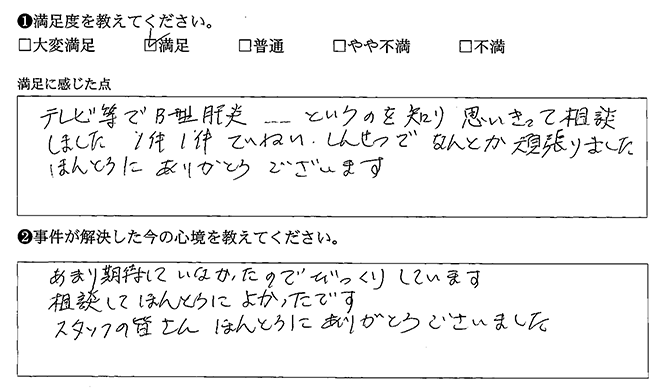 ❶満足度を教えてください。
□大変満足 ☑満足 □普通 □やや不満 □不満
満足に感じた点
テレビ等でB型肝炎 ―― というのを知り 思いきって相談
しました 1件1件 ていねい、しんせつで なんとか頑張りました
ほんとうに ありがとう ございます
❷事件が解決した今の心境を教えてください。
あまり期待していなかったので びっくりしています
相談して ほんとうに よかったです
スタッフの皆さん ほんとうに ありがとうございました